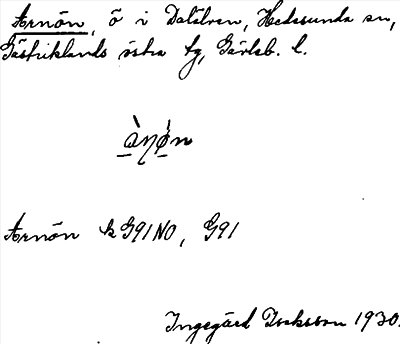 Arnön, ö i Dalälven, Hedesunda sn,
Gästriklands östra tg, Gävleb. l.
ànø̀n
Arnön k G91NO, G91
Ingegärd Isaksson 1930.